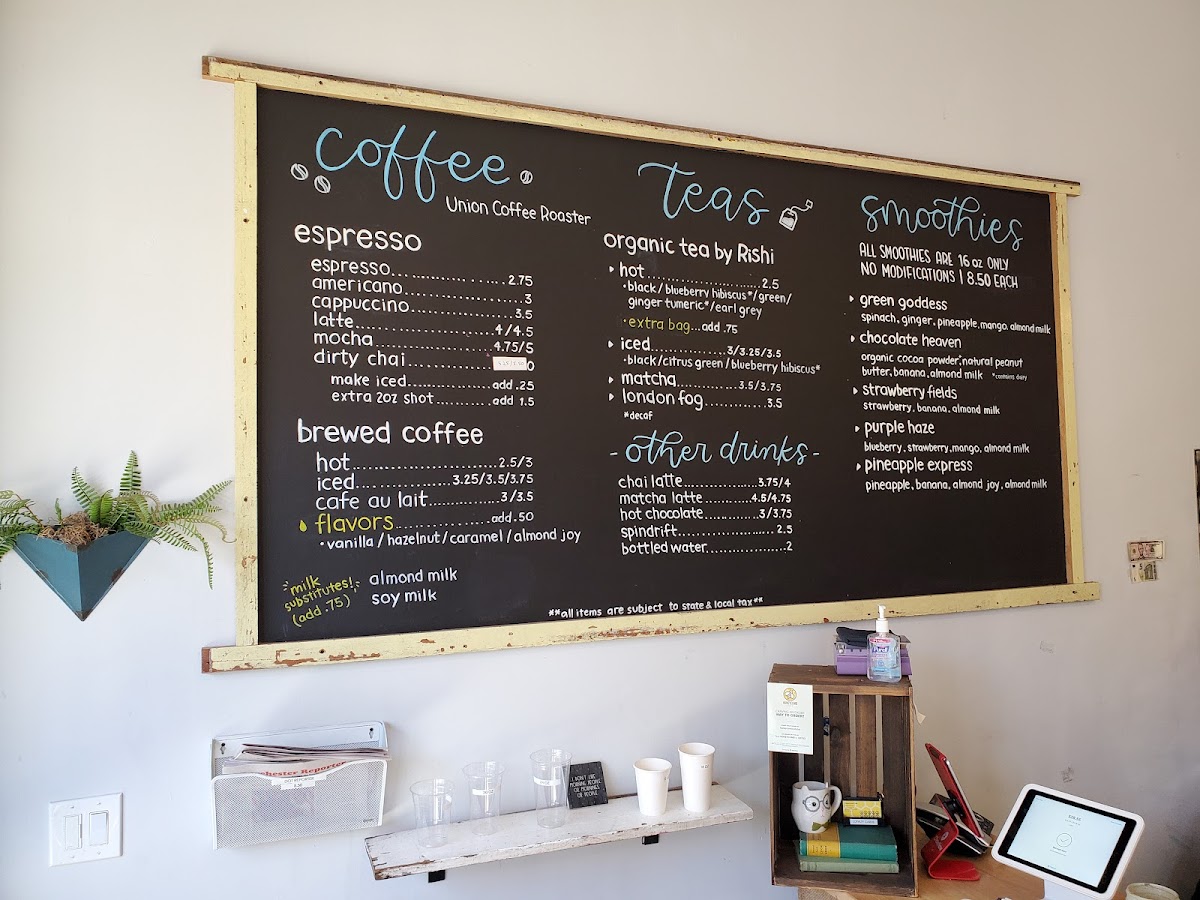 coffee
Union Coffee Roaster
espresso
espresso...................2.75
americano..................3
cappuccino.................3.5
latte......................4/4.5
mocha......................4.75/5
dirty chai.................
make iced..................add .25
extra 2oz shot.............add 1.5
brewed coffee
hot........................2.5/3
iced.......................3.25/3.5/3.75
cafe au lait...............3/3.5
flavors....................add .50
•vanilla/hazelnut/caramel/almond joy
milk
substitutes!
(add .75)
almond milk
soy milk
teas
organic tea by Rishi
hot........................2.5
•black/blueberry hibiscus*/green/
ginger tumeric*/earl grey
•extra bag...add .75
iced...............3/3.25/3.5
•black/citrus green/blueberry hibiscus*
matcha.............3.5/3.75
london fog............3.5
*decaf
-other drinks-
chai latte...............3.75/4
matcha latte...........4.5/4.75
hot chocolate............3/3.75
spindrift....................2.5
bottled water................2
smoothies
ALL SMOOTHIES ARE 16 oz ONLY
NO MODIFICATIONS | 8.50 EACH
green goddess
spinach, ginger, pineapple, mango, almond milk
chocolate heaven
organic cocoa powder*, natural peanut
butter, banana, almond milk *contains dairy
strawberry fields
strawberry, banana, almond milk
purple haze
blueberry, strawberry, mango, almond milk
pineapple express
pineapple, banana, almond joy, almond milk
**all items are subject to state & local tax**
Reporter
I DON'T LIKE
MORNING PEOPLE.
OR MORNINGS.
OR PEOPLE.
Purell